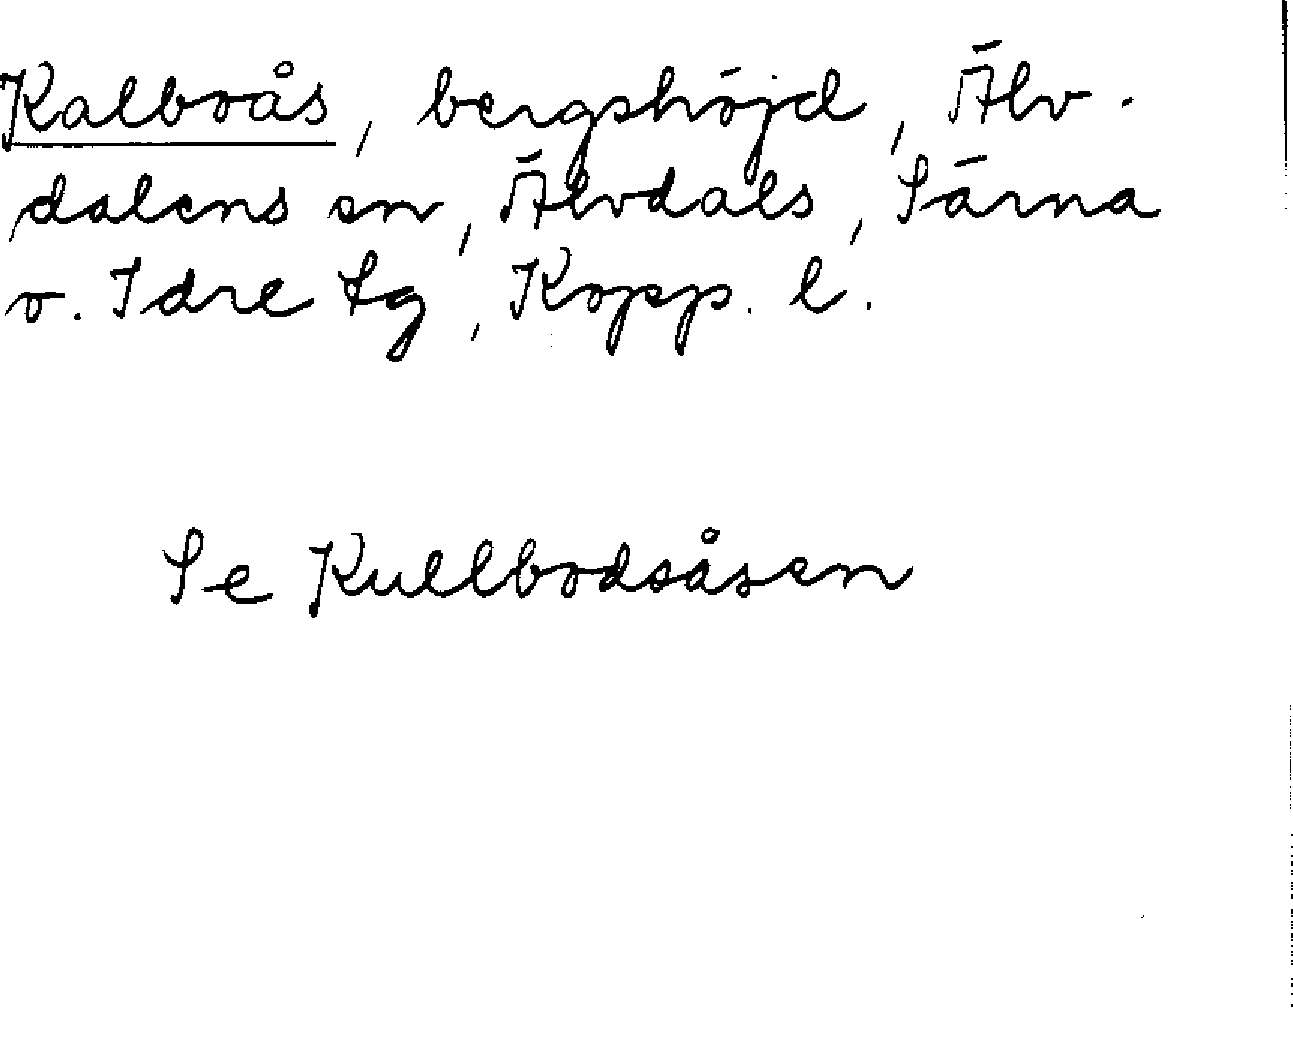 Kalboås, bergshöjd, Älv-
dalens sn, Älvdals, Särna
o. Idre tg, Kopp. l.
Se Kullbodsåsen